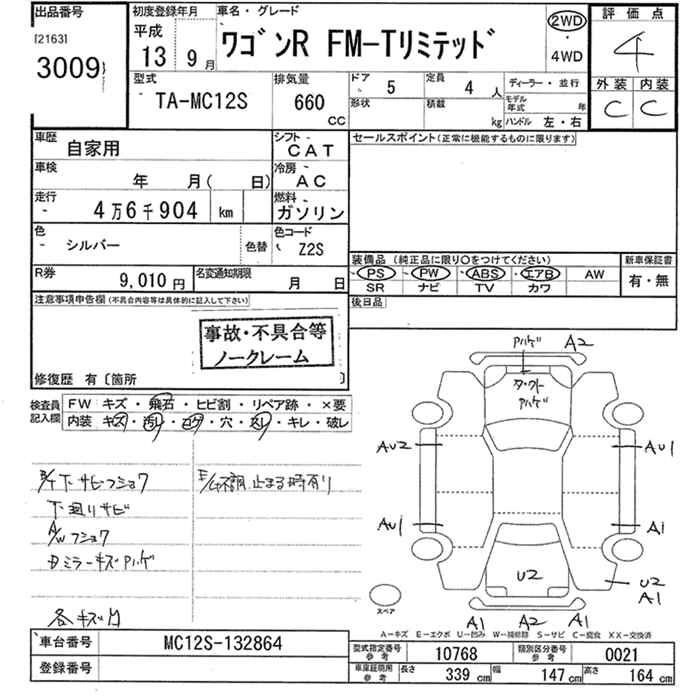 出品番号
[2163]
3009
初度登録年月
平成
13 9月
車名・グレード
ワゴンR FM-Tリミテッド
2WD
・
4WD
評価点
4
外装 内装
C C
型式
TA-MC12S
排気量
660
cc
ドア 5
定員 4人
ディーラー・並行
形状
積載 kg
モデル年式 年
ハンドル 左・右
車歴 自家用
シフト
CAT
セールスポイント(正常に機能するものに限ります)
車検 年 月( 日)
冷房
AC
走行 4万6千904 km
燃料
ガソリン
色 シルバー 色替
色コード
Z2S
装備品(純正品に限り○をつけてください)
新車保証書
PS PW ABS エアB AW
SR ナビ TV カワ
有・無
R券 9,010円
名変通知期限 月 日
後日品
注意事項申告欄(不具合内容等は具体的に記入して下さい)
事故・不具合等
ノークレーム
修復歴 有〔箇所 〕
検査員記入欄
FW キズ・飛石・ヒビ割・リペア跡・×要
内装 キズ・汚れ・コゲ・穴・スレ・キレ・破レ
下サビフショク
下廻りサビ
A/Wフショク
ミラーキズハゲ
各キズ凹
E/G不調 止まる時有り
ハゲ A2
ダクト
ハゲ
AU2
AU1
AU1
A1
U2
U2
A1
スペア
A1 A2 A1
A-キズ E-エクボ U-凹み W-補修跡 S-サビ C-腐食 XX-交換済
車台番号 MC12S-132864
登録番号
型式指定番号
参考
10768
類別区分番号
参考
0021
車庫証明用
参考
長さ 339cm 幅 147cm 高さ 164cm